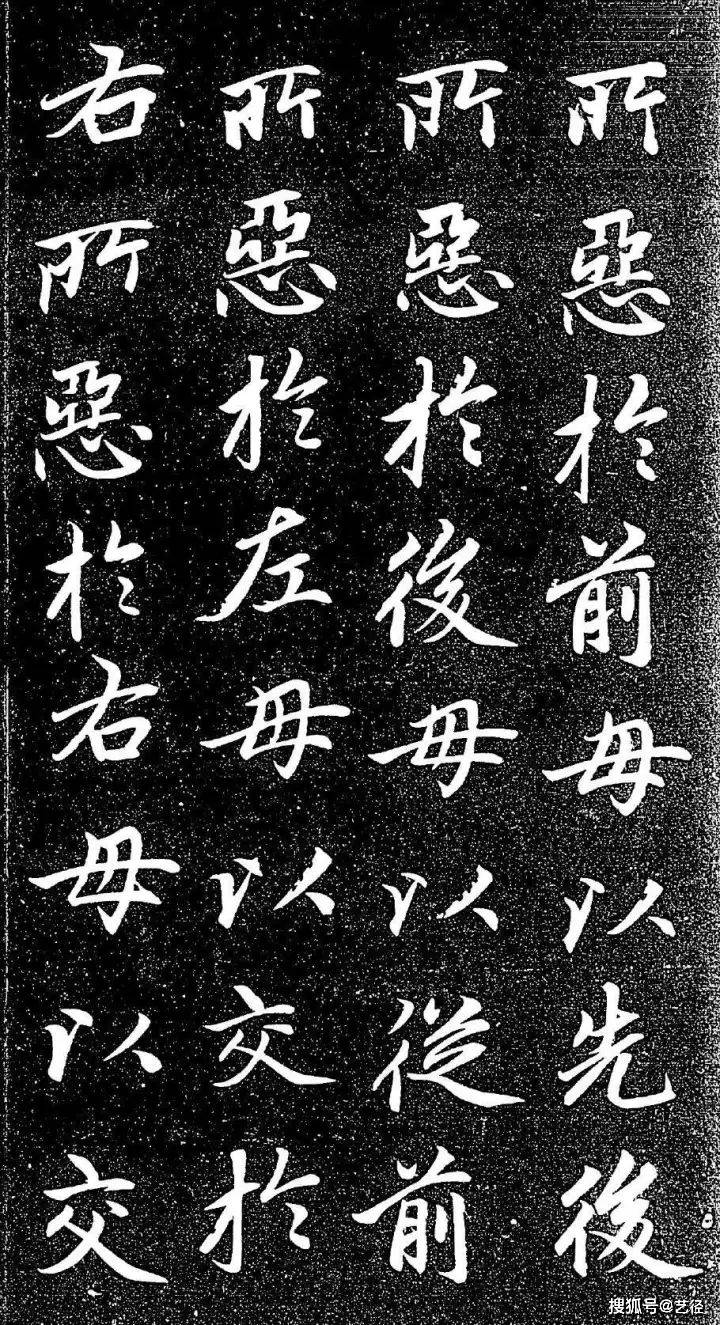 所惡於前毋以先後
所惡於後毋以從前
所惡於左毋以交於
右所惡於右毋以交
搜狐号@艺径